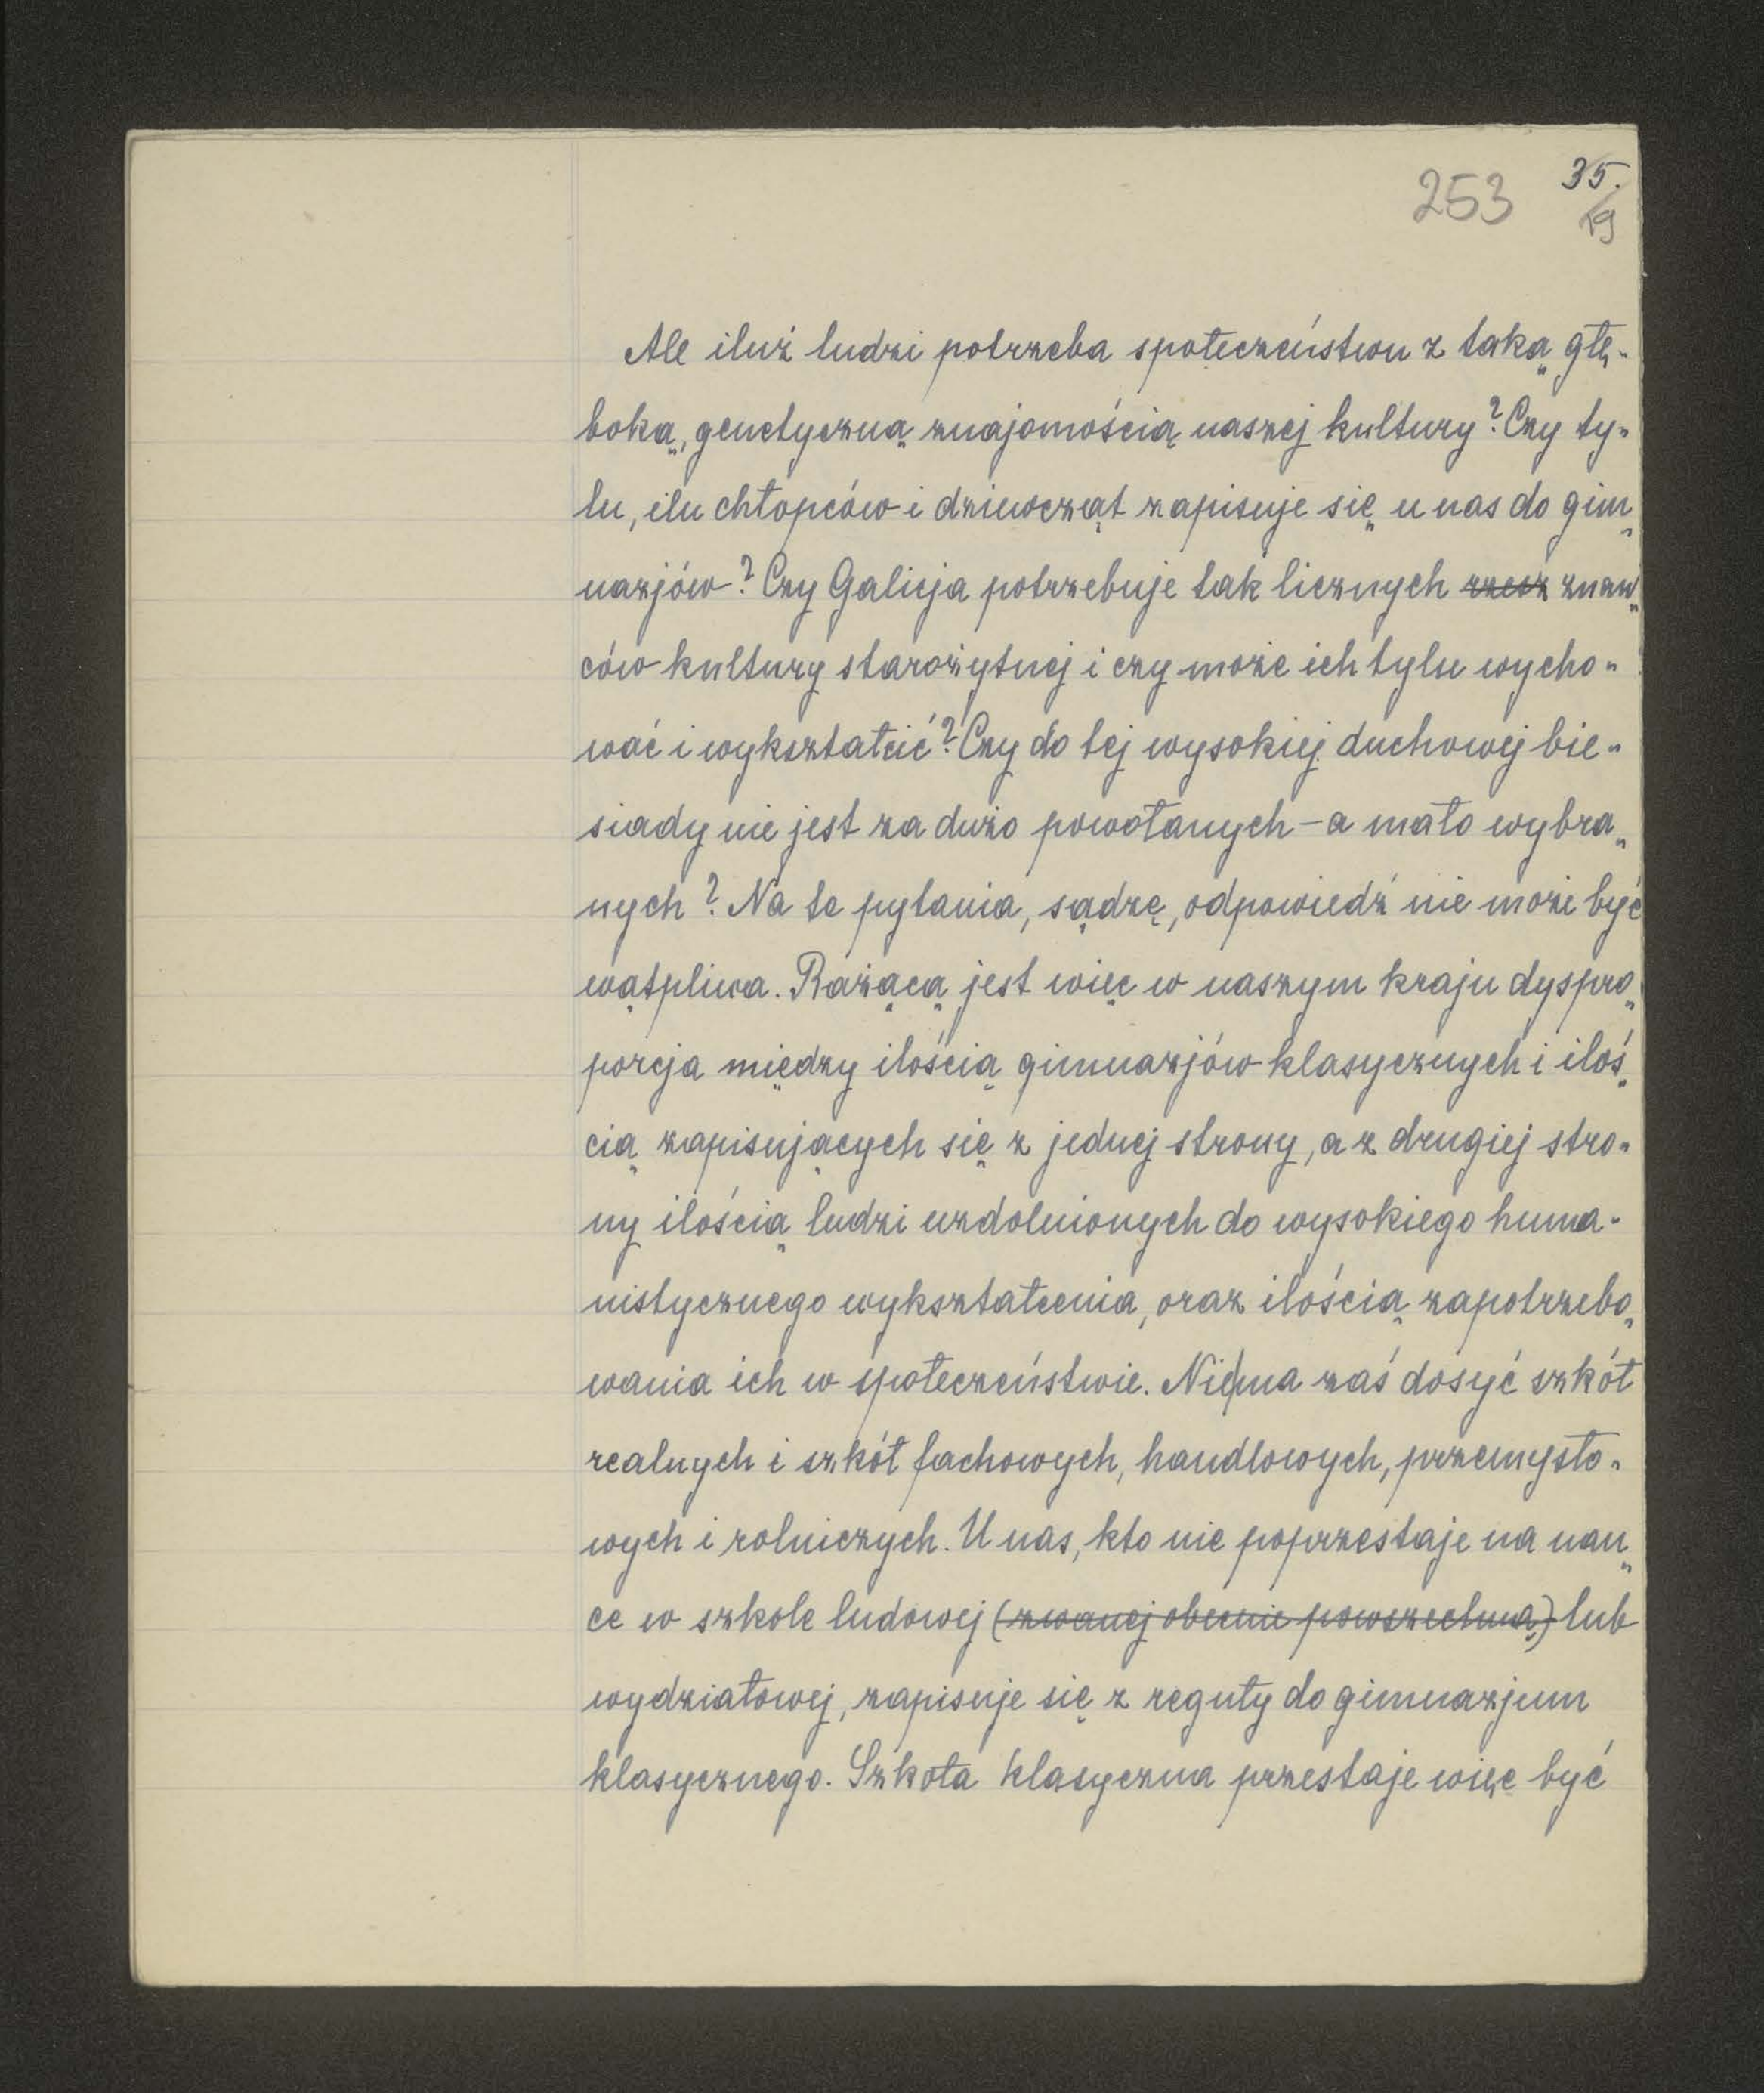 253 35.
19
Ale iluż ludzi potrzeba społeczeństwu z taką głę-
boką, genetyczną znajomością naszej kultury? Czy ty-
lu, ilu chłopców i dziewcząt zapisuje się u nas do gim-
nazjów? Czy Galicja potrzebuje tak licznych rzesz znaw-
ców kultury starożytnej i czy może ich tylu wycho-
wać i wykształcić? Czy do tej wysokiej duchowej bie-
siady nie jest za dużo powołanych - a mało wybra-
nych? Na te pytania, sądzę, odpowiedź nie może być
wątpliwa. Rażącą jest więc w naszym kraju dyspro-
porcja między ilością gimnazjów klasycznych i iloś-
cią zapisujących się z jednej strony, a z drugiej stro-
ny ilością ludzi uzdolnionych do wysokiego huma-
nistycznego wykształcenia, oraz ilością zapotrzebo-
wania ich w społeczeństwie. Nie|ma zaś dosyć szkół
realnych i szkół fachowych, handlowych, przemysło-
wych i rolniczych. U nas, kto nie poprzestaje na nau-
ce w szkole ludowej (zwanej obecnie powszechną) lub
wydziałowej, zapisuje się z reguły do gimnazjum
klasycznego. Szkoła klasyczna przestaje więc być